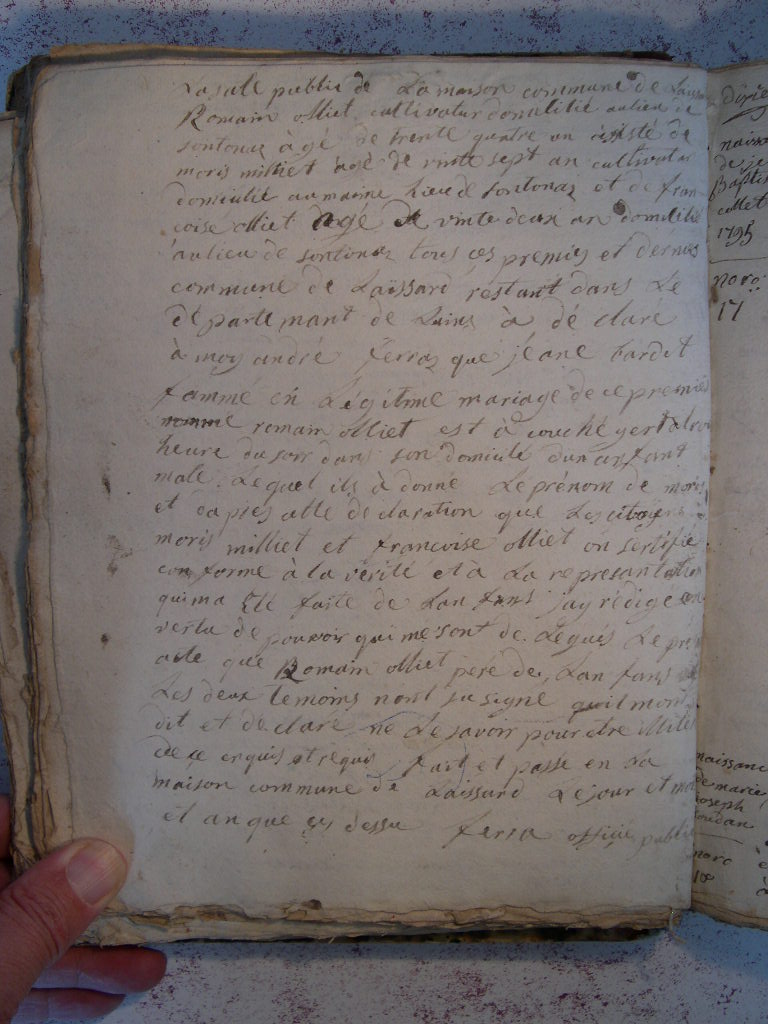 La sale public de La maison commune de Laissa
Romain olliet cultivatur domilitié au lieu de
sontonaz àgé de trente quatre an assisté de
moris milliet agé de vinte sept an cultivatur
domiulié au maime lieu de sontonaz et de fran
coise olliet agé de vinte deux an domilitié
au lieu de sontonaz tous ces premiers et derniers
commune de Laissard restant dans Le
departemant de Lains à dé clare
à moy andré ferraz que jeane tardit
fammé en Légitime mariage de ce premié
nommé romain olliet est à couché yert
heure du soir dans son domicilé dun anfant
male Lequel ils à donné Le prénom de moris
et daprés cette déclaration que Les citoyens
moris milliet et francoise olliet on sertifié
conforme à la vérité et à La represantation
qui ma Eté faite de Lan fans jay rédigé en
vertu de pouvoir qui me sont de Légués Le pré
acte que Romain olliet peré de Lan fans
Les deux temoins nont su signé quil mont
dit et de claré ne Le savoir pour etre illite
de ce enquis et requis fait et passe en La
maison commune de Laissard Le jour et moi
et an que cy dessu ferra officié public
naissa
de je
Baptis
collet
1795
noro
17
naissance
de marie
joseph
noro
18